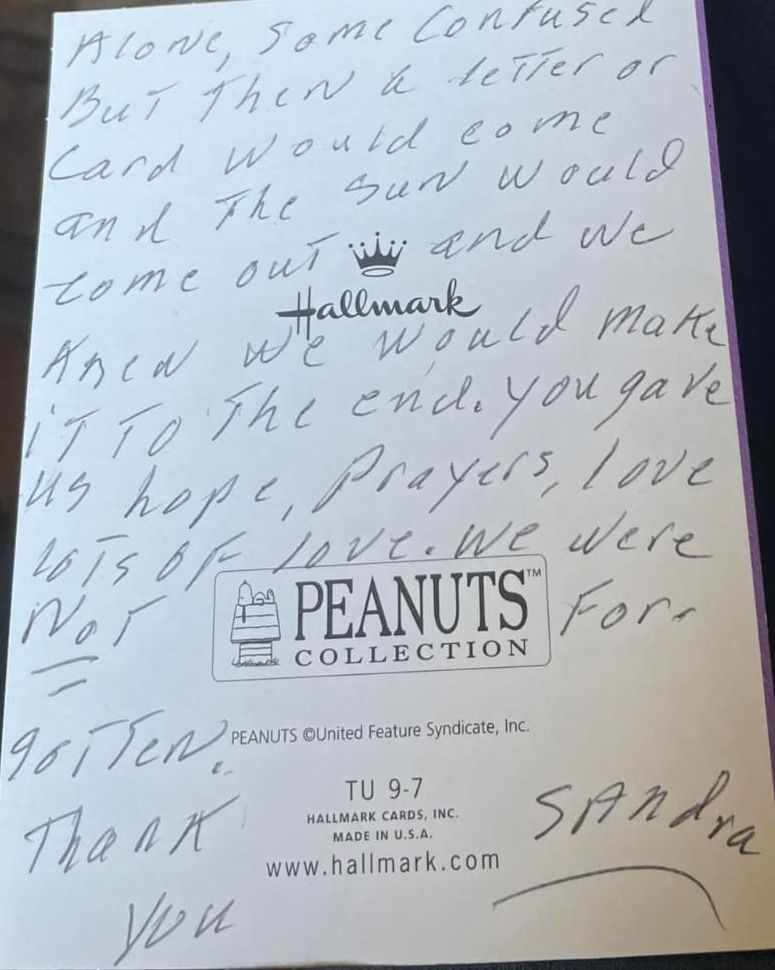 Alone, Some Confused
But Then a letter or
Card would come
and The sun would
come out and we
Hallmark
Knew we would make
iT To The end. You gave
us hope, Prayers, love
loTs oF love. We were
NoT For-
PEANUTS™
COLLECTION
goTTen.
PEANUTS ©United Feature Syndicate, Inc.
TU 9-7
HALLMARK CARDS, INC.
MADE IN U.S.A.
www.hallmark.com
Thank
you
SAndra